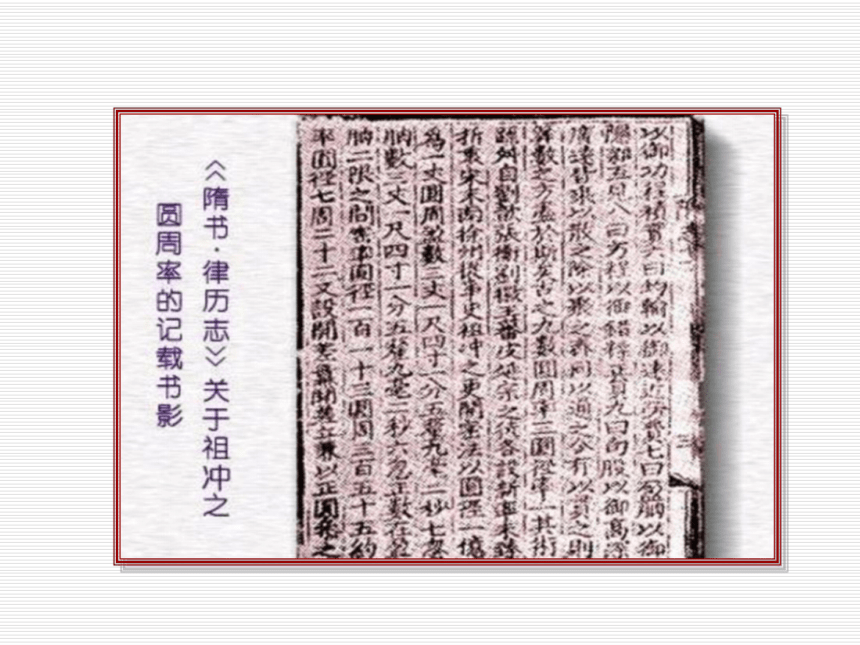 以御功程積實六曰均輸以御遠近勞費七曰盈朒以御
隱雜互見八曰方程以御錯糅正負九曰句股以御高深
廣遠皆乘以散之除以聚之齊同以通之今有以貫之則
算數之方盡於斯矣古之九數圓周率三圓徑率一其術
疏舛自劉歆張衡劉徽王蕃皮延宗之徒各設新率未臻
折衷宋末南徐州從事史祖沖之更開密法以圓徑一億
為一丈圓周盈數三丈一尺四寸一分五釐九毫二秒七忽
朒數三丈一尺四寸一分五釐九毫二秒六忽正數在盈
朒二限之間密率圓徑一百一十三圓周三百五十五約
率圓徑七周二十二又設開差冪開差立兼以正圓參之
《隋书·律历志》关于祖冲之
圆周率的记载书影